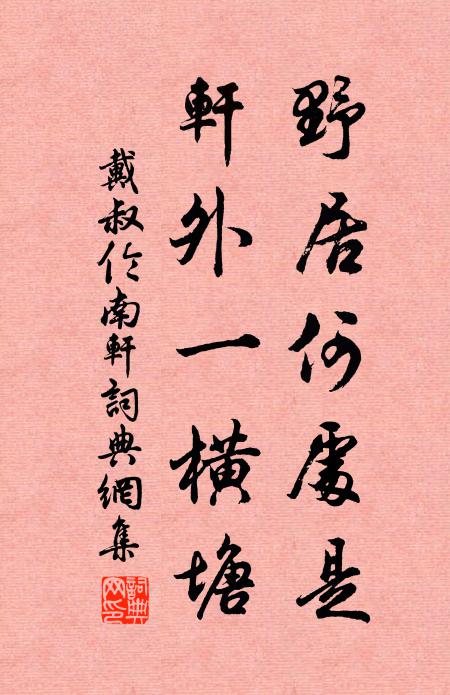 野居何處是
軒外一橫塘
戴叔伦南軒詞典網集
詞典網印